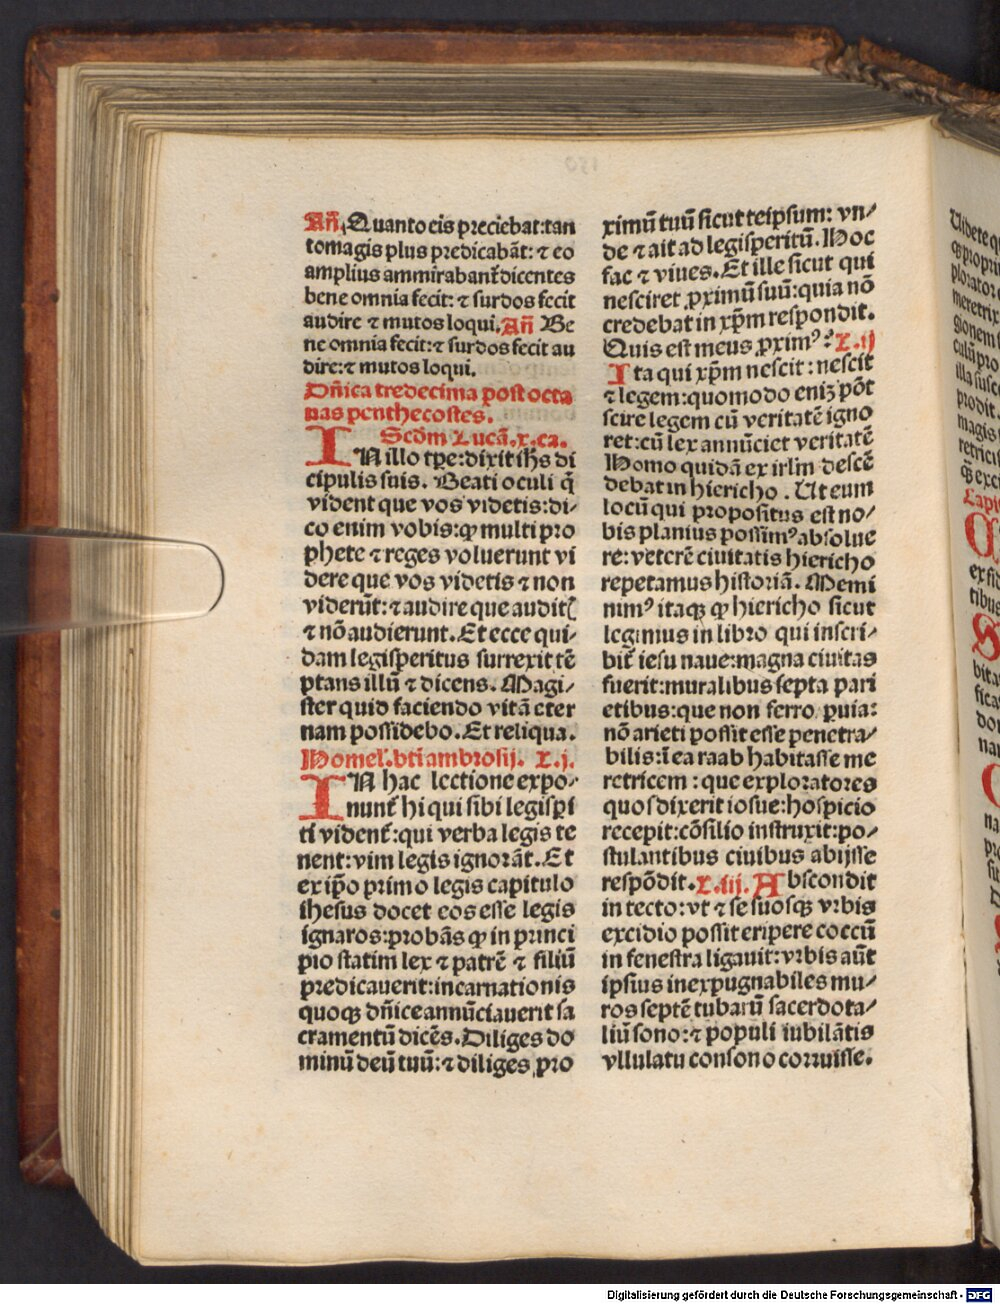 Añ. Quanto eis preciebat: tan
to magis plus predicabãt: ⁊ eo
amplius ammirabant̃ dicentes
bene omnia fecit: ⁊ surdos fecit
audire ⁊ mutos loqui. Añ Be
ne omnia fecit: ⁊ surdos fecit au
dire: ⁊ mutos loqui.
Dñica tredecima post octa
uas penthecostes.
Scdm̃ Lucã. x. ca.
IN illo tp̃e: dixit ihs̃ di
cipulis suis. Beati oculi q̃
vident que vos videtis: di-
co enim vobis: ꝙ multi pro
phete ⁊ reges voluerunt vi
dere que vos videtis ⁊ non
viderũt: ⁊ audire que audit(
⁊ nõ audierunt. Et ecce qui-
dam legisꝑitus surrexit tẽ
ptans illũ ⁊ dicens. Magi-
ster quid faciendo vitã eter
nam possidebo. Et reliqua.
Homel'. bti ambrosij. L. j.
IN hac lectione expo-
nunt̃ hi qui sibi legisꝑi
ti vident̃: qui verba legis te
nent: vim legis ignorãt. Et
ex ip̃o primo legis capitulo
ihesus docet eos esse legis
ignaros: probãs ꝙ in princi
pio statim lex ⁊ patrẽ ⁊ filiũ
predicauerit: incarnationis
quoqꝫ dñice annũciauerit sa
cramentũ dicẽs. Diliges do
minũ deũ tuũ: ⁊ diliges ꝓ
ximũ tuũ sicut teipsum: vn-
de ⁊ ait ad legisperitũ. Hoc
fac ⁊ viues. Et ille sicut qui
nesciret ꝓximũ suũ: quia nõ
credebat in xp̃m respondit.
Quis est meus ꝓxim⁹? L. ij
Ita qui xp̃m nescit: nescit
⁊ legem: quomodo eniꝫ põt
scire legem cũ veritatẽ igno
ret: cũ lex annũciet veritatẽ
Homo quidã ex irl̃m descẽ
debat in hiericho. Ut eum
locũ qui propositus est no-
bis planius possim⁹ absolue
re: veterẽ ciuitatis hiericho
repetamus historiã. Memi
nim⁹ itaqꝫ ꝙ hiericho sicut
legimus in libro qui inscri-
bit̃ iesu naue: magna ciuitas
fuerit: muralibus septa pari
etibus: que non ferro ꝑuia:
nõ arieti possit esse penetra-
bilis: ĩ ea raab habitasse me
retricem: que exploratores
quos dixerit iosue: hospicio
recepit: cõsilio instruxit: po-
stulantibus ciuibus abijsse
respõdit. L. iij. Abscondit
in tecto: vt ⁊ se suosqꝫ vrbis
excidio possit eripere coccũ
in fenestra ligauit: vrbis aũt
ipsius inexpugnabiles mu-
ros septẽ tubarũ sacerdota-
liũ sono: ⁊ populi iubilãtis
vllulatu consono corruisse.
Digitalisierung gefördert durch die Deutsche Forschungsgemeinschaft - DFG